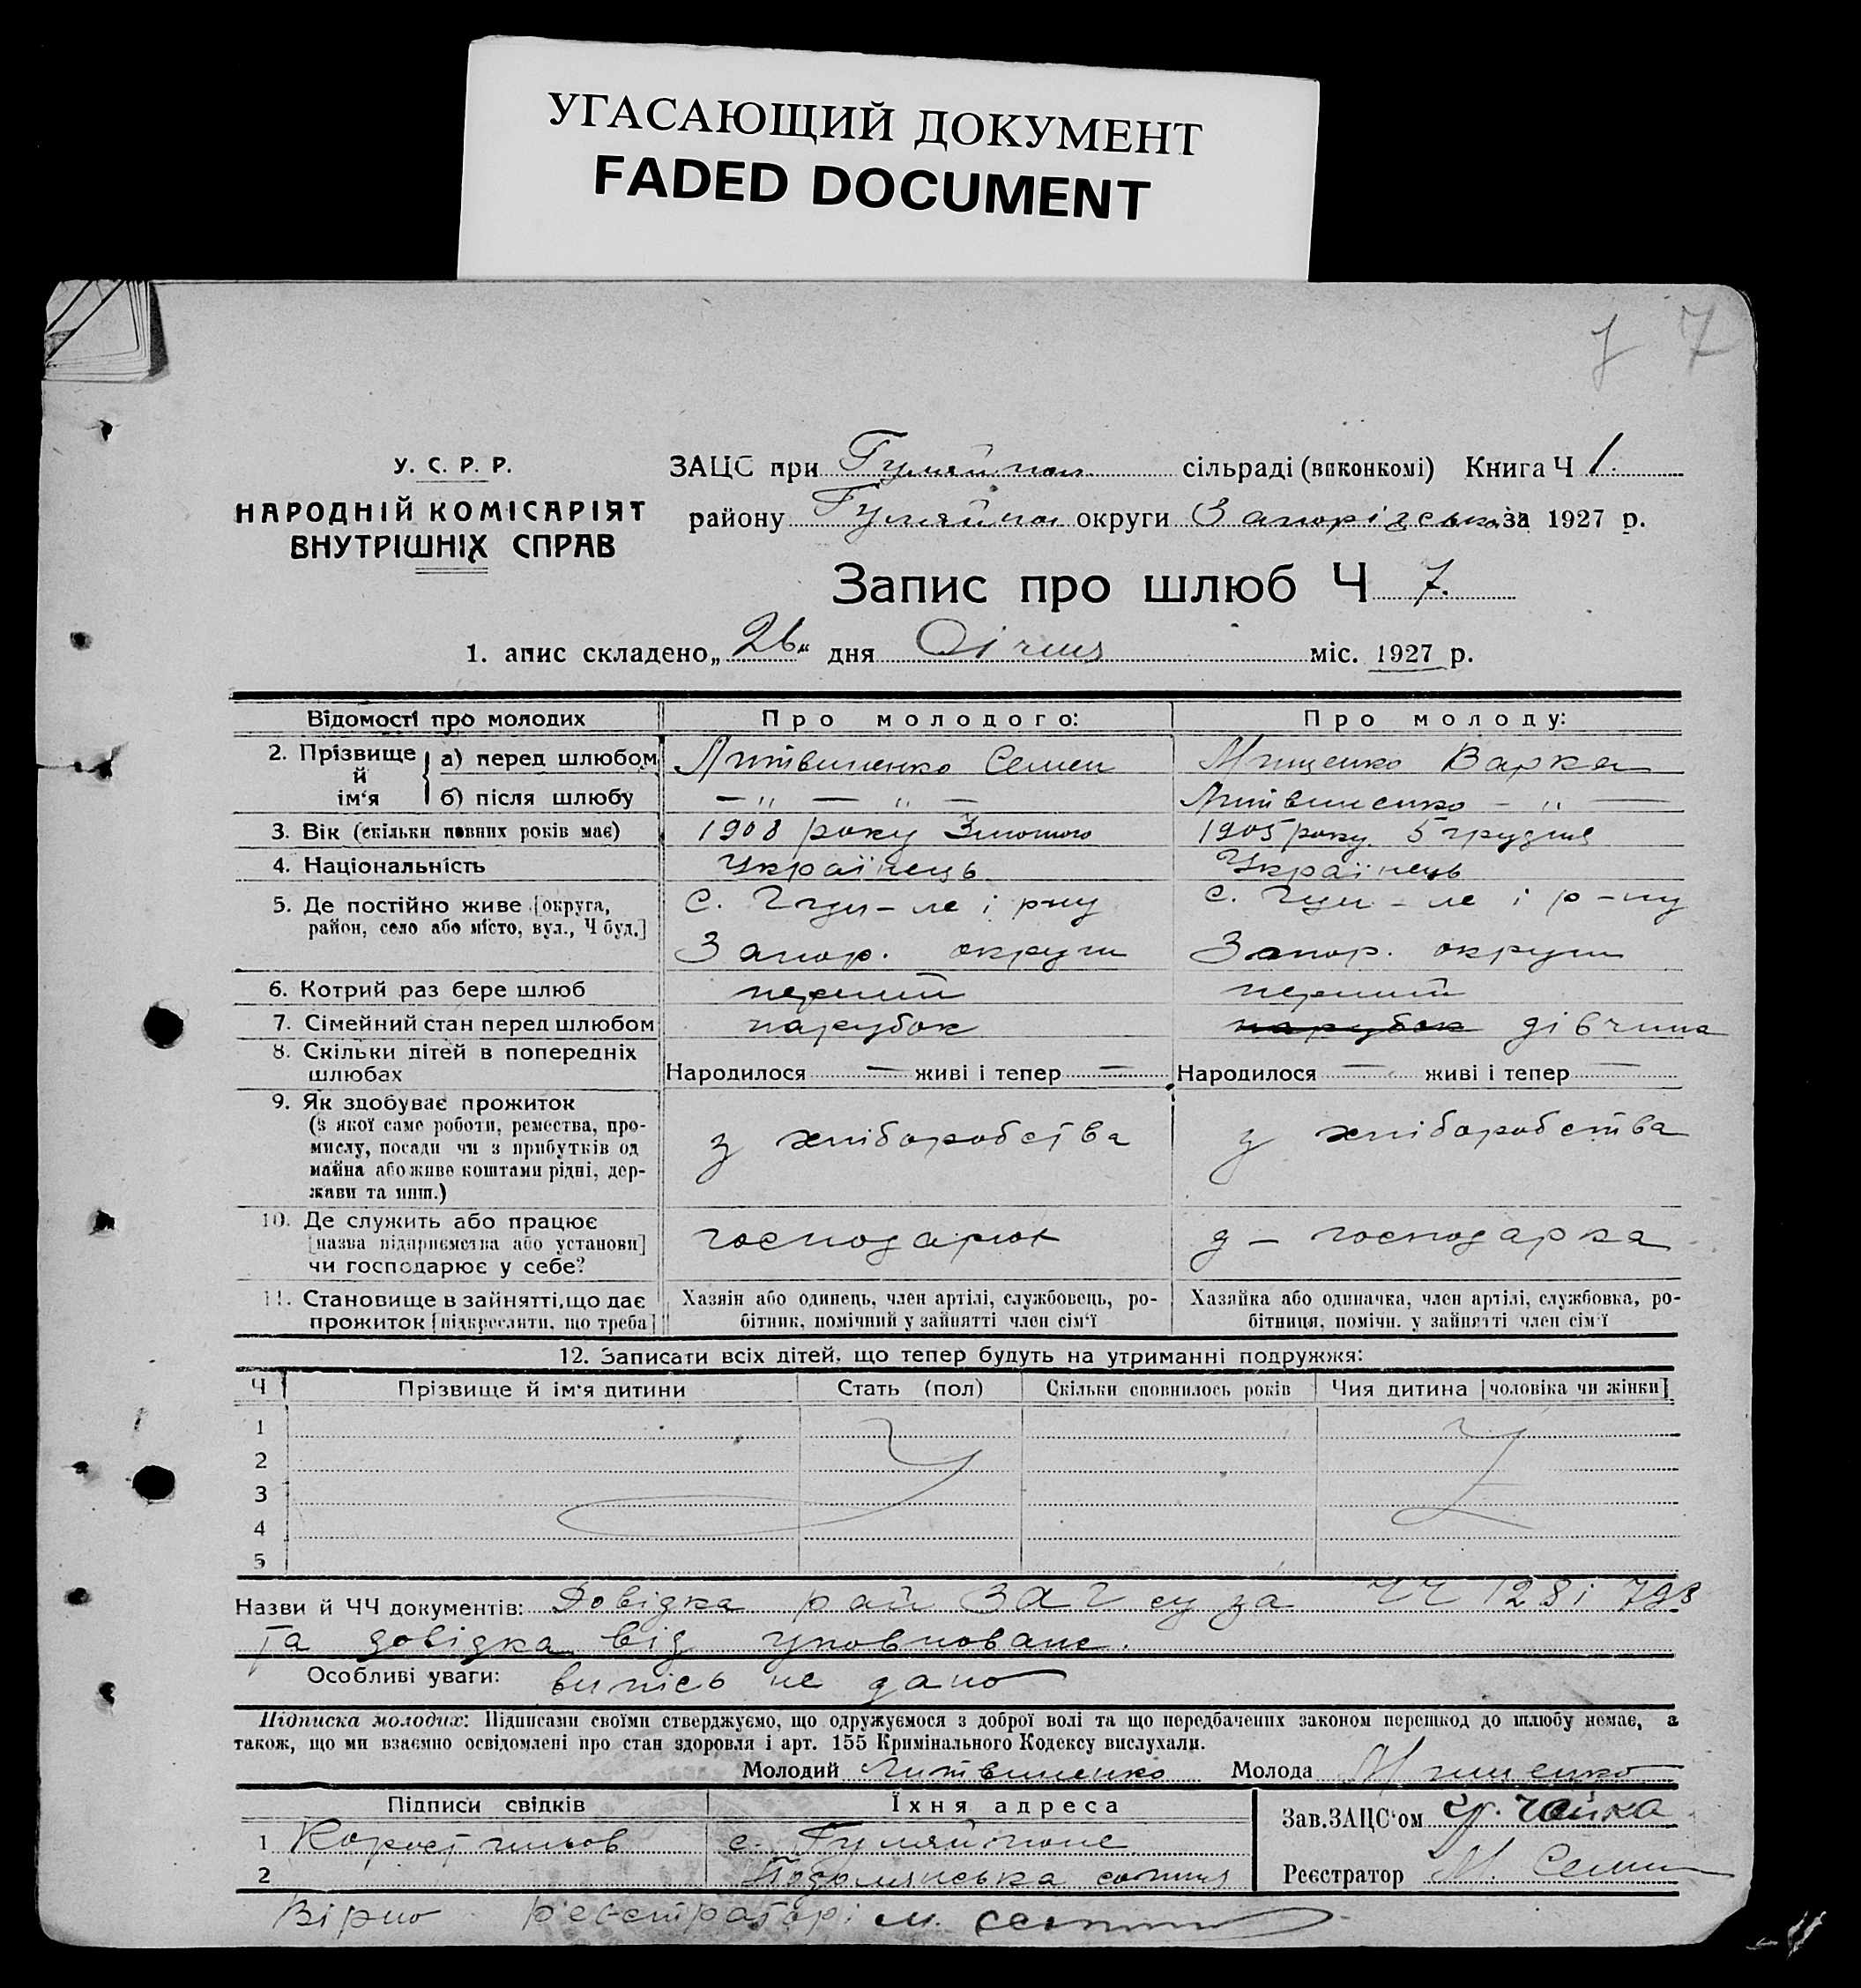 УГАСАЮЩИЙ ДОКУМЕНТ
FADED DOCUMENT
7
У. С. Р. Р.
НАРОДНІЙ КОМІСАРІЯТ
ВНУТРІШНІХ СПРАВ
ЗАЦС при Гуляйпол сільраді (виконкомі) Книга Ч 1.
району Гуляйпол округи Запорізська за 1927 р.
Запис про шлюб Ч 7.
1. апис складено „26" дня Січня міс. 1927 р.
Відомості про молодих Про молодого: Про молоду:
2. Прізвище й ім'я а) перед шлюбом Литвиненко Семен Мищенко Варка
б) після шлюбу — " — " — Литвиненко — " —
3. Вік (скільки повних років має) 1908 року 3 лютого 1905 року 5 грудня
4. Національність Українець Українець
5. Де постійно живе [округа, район, село або місто, вул., Ч буд.] с. Гул-ле і р-ну с. Гул-ле і р-ну
Запор. округи Запор. округи
6. Котрий раз бере шлюб перший перший
7. Сімейний стан перед шлюбом парубок парубок дівчина
8. Скільки дітей в попередніх шлюбах Народилося — живі і тепер — Народилося — живі і тепер —
9. Як здобуває прожиток
(з якої саме роботи, ремества, про-
мислу, посади чи з прибутків од
майна або живе коштами рідні, дер-
жави та инш.)
з хліборобства з хліборобства
10. Де служить або працює
[назва підприємства або установи]
чи господарює у себе?
господарює д-господарка
11. Становище в зайнятті, що дає
прожиток [підкреслити, що треба]
Хазяін або одинець, член артілі, службовець, ро-
бітник, помічний у зайнятті член сім'ї
Хазяйка або одиначка, член артілі, службовка, ро-
бітниця, помічн. у зайнятті член сім'ї
12. Записати всіх дітей, що тепер будуть на утриманні подружжя:
Ч Прізвище й ім'я дитини Стать (пол) Скільки сповнилось років Чия дитина [чоловіка чи жінки]
1
2
3
4
5
Назви й ЧЧ документів: Довідка рай ЗАГСу за ЧЧ 128 і 798
та довідка від уповноване.
Особливі уваги: випись не дано
Підписка молодих: Підписами своїми стверджуємо, що одружуємося з доброї волі та що передбачених законом перешкод до шлюбу немає, а
також, що ми взаємно освідомлені про стан здоровля і арт. 155 Кримінального Кодексу вислухали.
Молодий Литвиненко Молода Мищенко
Підписи свідків Їхня адреса
1 с. Гуляйполе
2 сотня
Зав. ЗАЦС'ом Чайка
Реєстратор М.
Вірно Реєстратор: М.